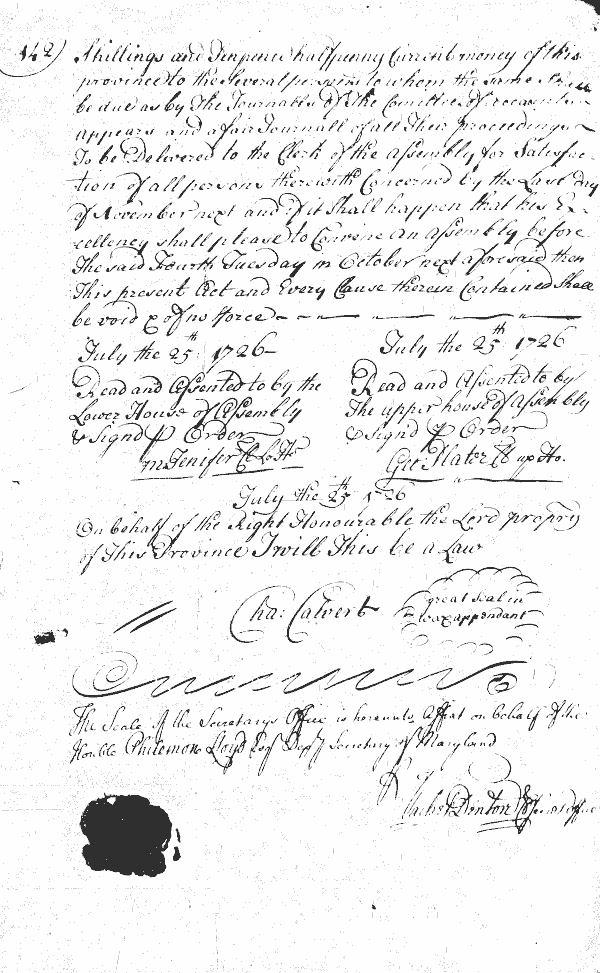 142
Shillings and Tenpence halfpenny Current money of this
province to the Several persons to whom the same Shall
be due as by the Journalls of The Comittee of
appears and a fair Journall of all Their proceedings
To be Delivered to the Clerk of the assembly for Satisfac-
tion of all persons therewith Concerned by the Last day
of November next and if it Shall happen that his Ex-
cellency shall please to Convene an assembly before
The said Fourth Tuesday in October next aforesaid then
This present Act and Every Clause therein Contained Shall
be void & of no Force
July the 25th 1726
Read and Assented to by the
Lower House of Assembly
& Signd p Order
M Jenifer Cl Lo Ho
July the 25th 1726
Read and Assented to by
The upper house of Assembly
& Signd p Order
Geo Plater Cl up Ho.
July the 25th 1726
On behalf of the Right Honourable the Lord propry
of This Province I will This be a Law
Cha: Calvert
great Seal in
wax appendant
The Seale of the Secretarys Office is hereunto Affixt on behalf of the
Honble Philemon Lloyd Esqr Depty Secretary of Maryland
Vachel Denton